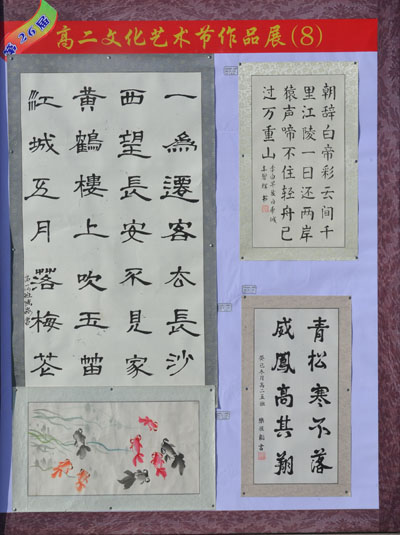 第26届
高二文化艺术节作品展(8)
一為遷客去長沙
西望長安不見家
黄鶴樓上吹玉笛
江城五月落梅花
朝辞白帝彩云间千
里江陵一日还两岸
猿声啼不住轻舟已
过万重山
青松寒不落
威鳳高其翔